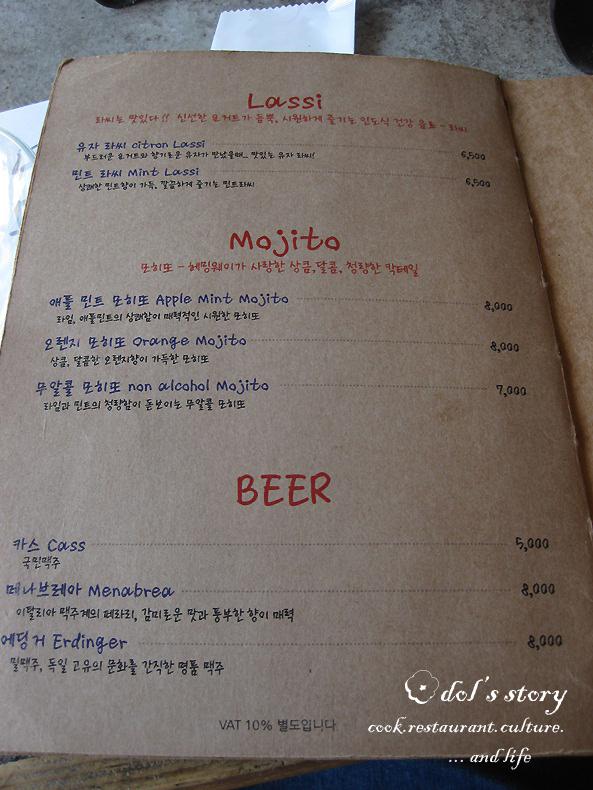 Lassi
라씨는 맛있다!! 신선한 요거트가 듬뿍, 시원하게 즐기는 인도식 건강 음료 - 라씨
유자 라씨 citron Lassi 6,500
부드러운 요거트와 향기로운 유자가 만났을때... 맛있는 유자 라씨!
민트 라씨 Mint Lassi 6,500
상쾌한 민트향이 가득, 깔끔하게 즐기는 민트라씨
Mojito
모히또 - 헤밍웨이가 사랑한 상큼,달콤, 청량한 칵테일
애플 민트 모히또 Apple Mint Mojito 8,000
라임, 애플민트의 상쾌함이 매력적인 시원한 모히또
오렌지 모히또 Orange Mojito 8,000
상큼, 달콤한 오렌지향이 가득한 모히또
무알콜 모히또 non alcohol Mojito 7,000
라임과 민트의 청량함이 돋보이는 무알콜 모히또
BEER
카스 Cass 5,000
국민맥주
메나브레아 Menabrea 8,000
이탈리아 맥주계의 페라리, 감미로운 맛과 풍부한 향이 매력
에딩거 Erdinger 8,000
밀맥주, 독일 고유의 문화를 간직한 명품 맥주
VAT 10% 별도입니다
dol's story
cook.restaurant.culture.
... and life